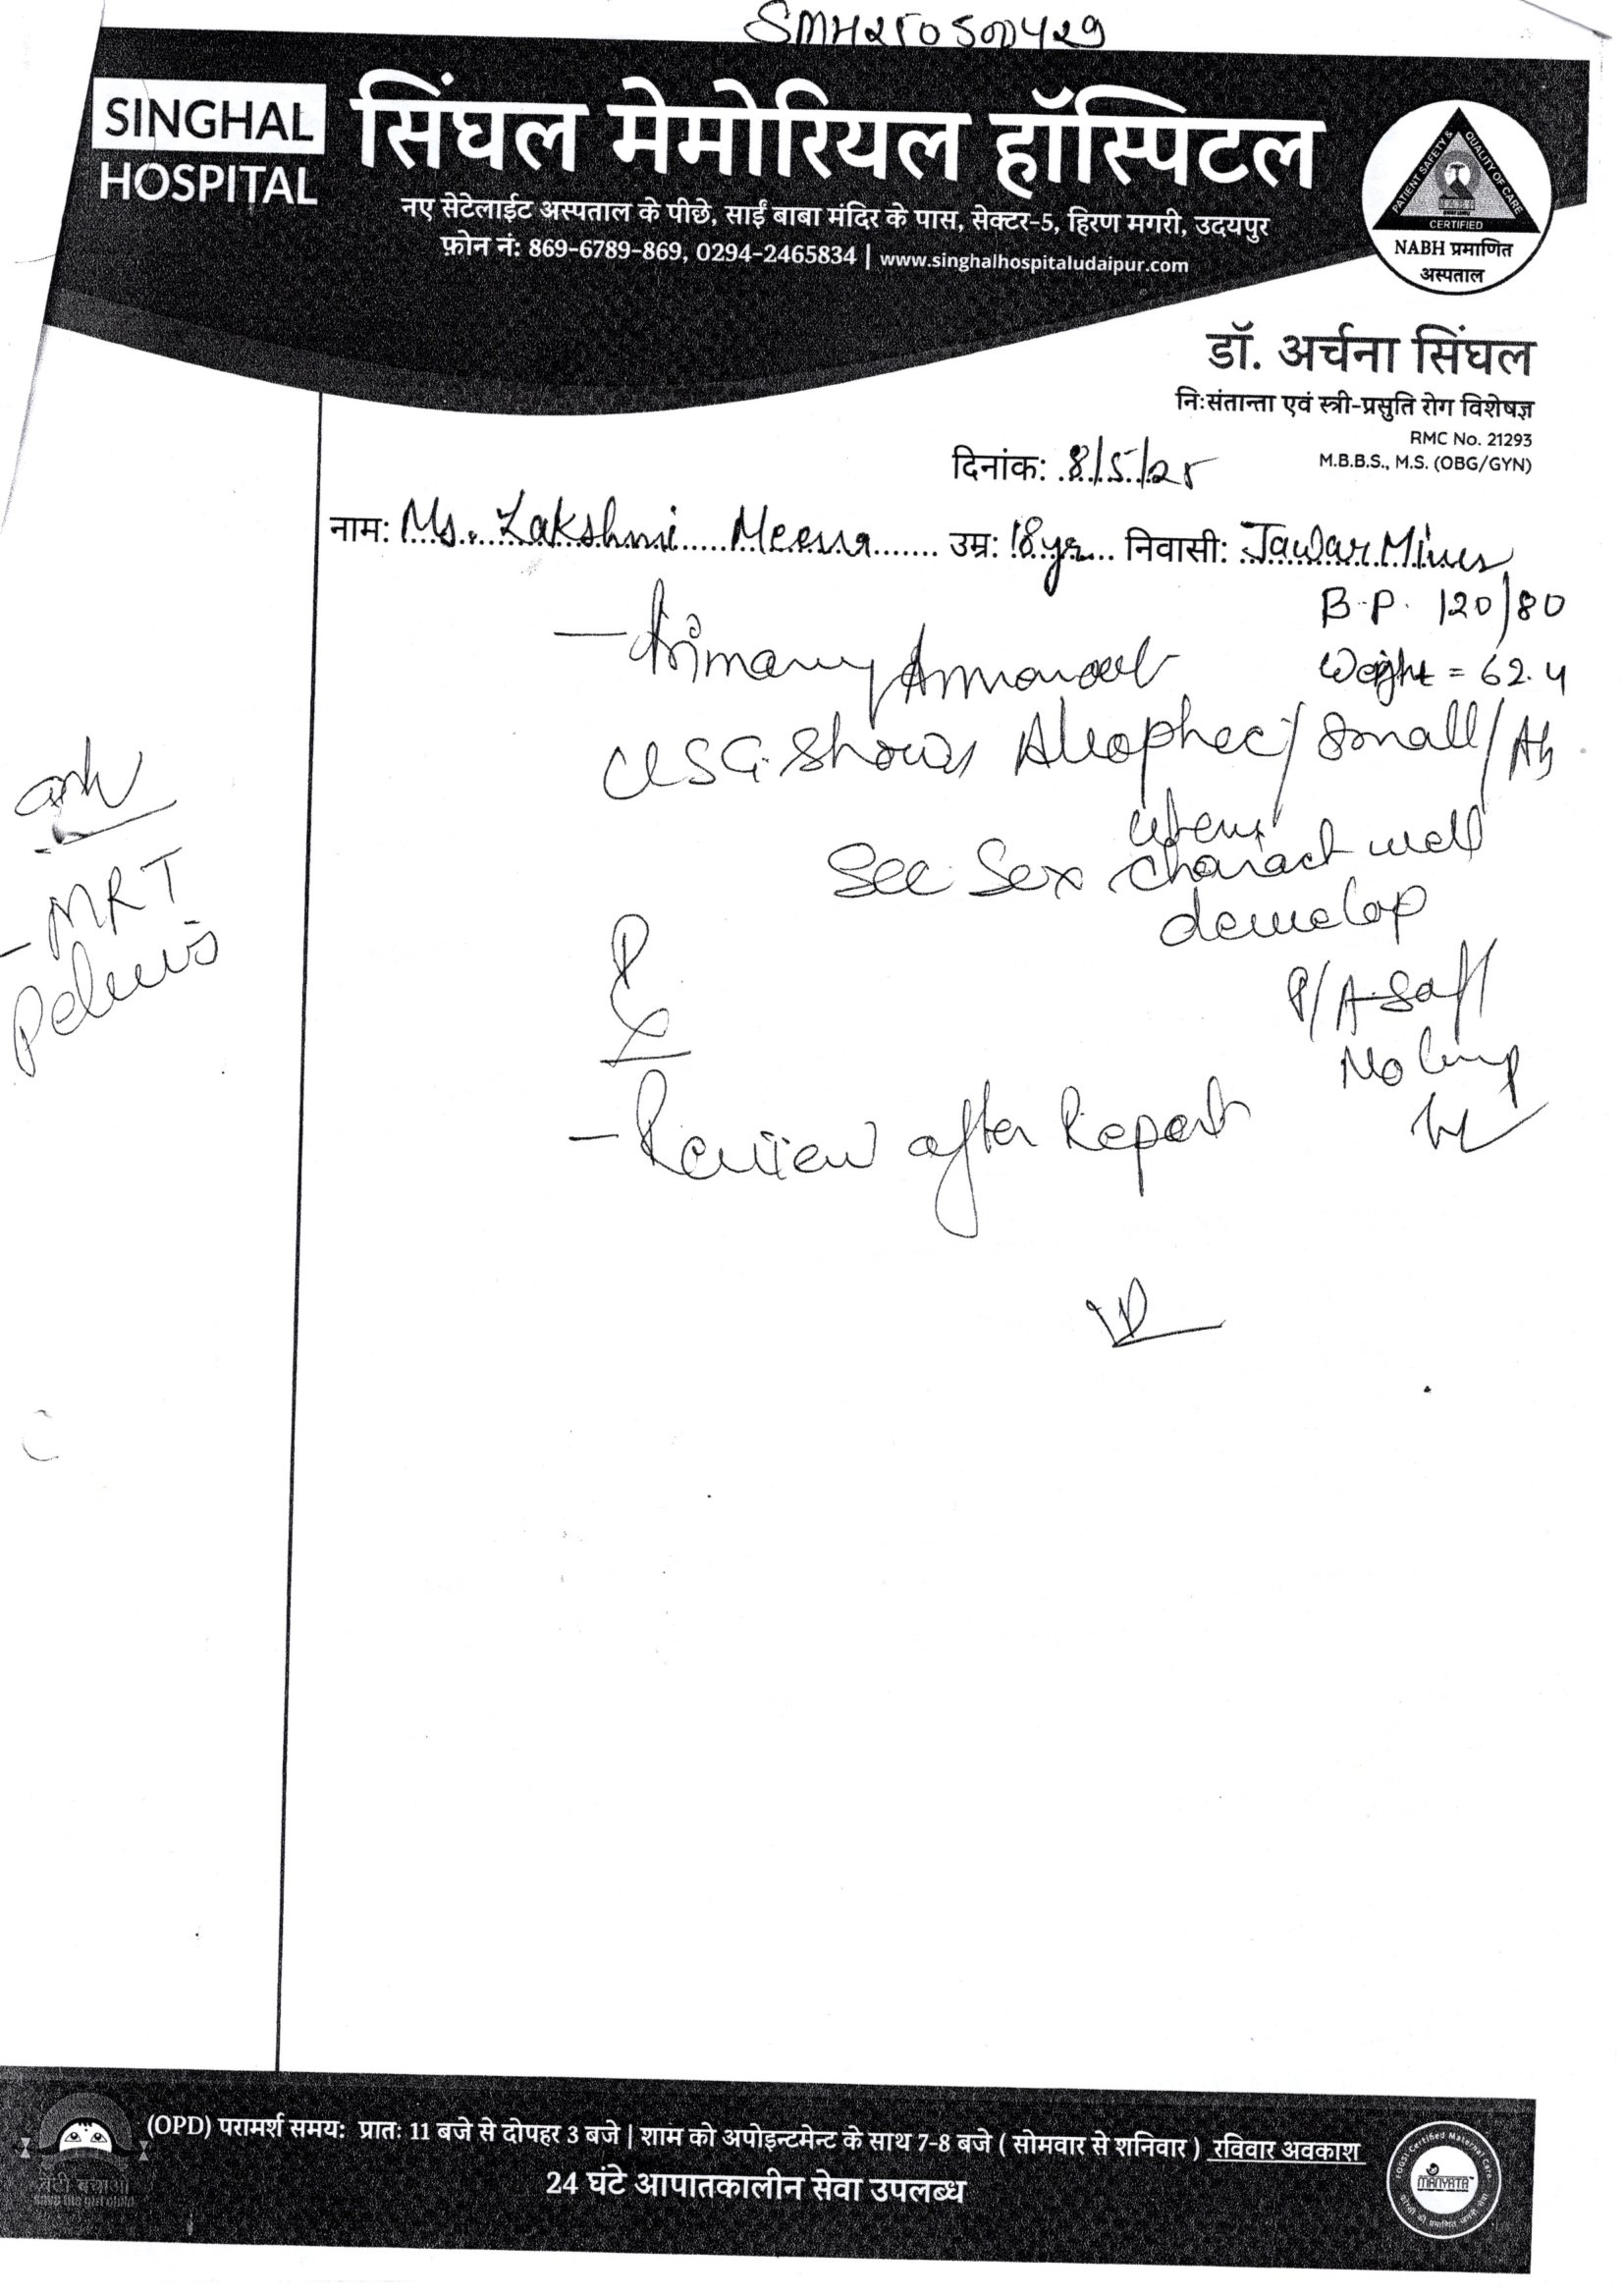 SMH250500429
SINGHAL
HOSPITAL
सिंघल मेमोरियल हॉस्पिटल
नए सेटेलाईट अस्पताल के पीछे, साईं बाबा मंदिर के पास, सेक्टर-5, हिरण मगरी, उदयपुर
फ़ोन नं: 869-6789-869, 0294-2465834 | www.singhalhospitaludaipur.com
PATIENT SAFETY & QUALITY OF CARE
CERTIFIED
NABH प्रमाणित
अस्पताल
डॉ. अर्चना सिंघल
निःसंतान्ता एवं स्त्री-प्रसुति रोग विशेषज्ञ
RMC No. 21293
M.B.B.S., M.S. (OBG/GYN)
दिनांक: 8/5/25
नाम: Ms. Lakshmi Meena उम्र: 18yr निवासी: Jawar Mines
B.P. 120/80
Weight = 62.4
- Primary
USG. Shows / Small / Ab
uterus
Sec. Sex charact well
develop
- MRI
Pelvis
P/A Soft
No lump
Rx
- Review after Report
(OPD) परामर्श समय: प्रातः 11 बजे से दोपहर 3 बजे | शाम को अपोइन्टमेन्ट के साथ 7-8 बजे ( सोमवार से शनिवार ) रविवार अवकाश
24 घंटे आपातकालीन सेवा उपलब्ध
बेटी बचाओ
save the girl child
FOGSI Certified Maternal Care
MANYATA